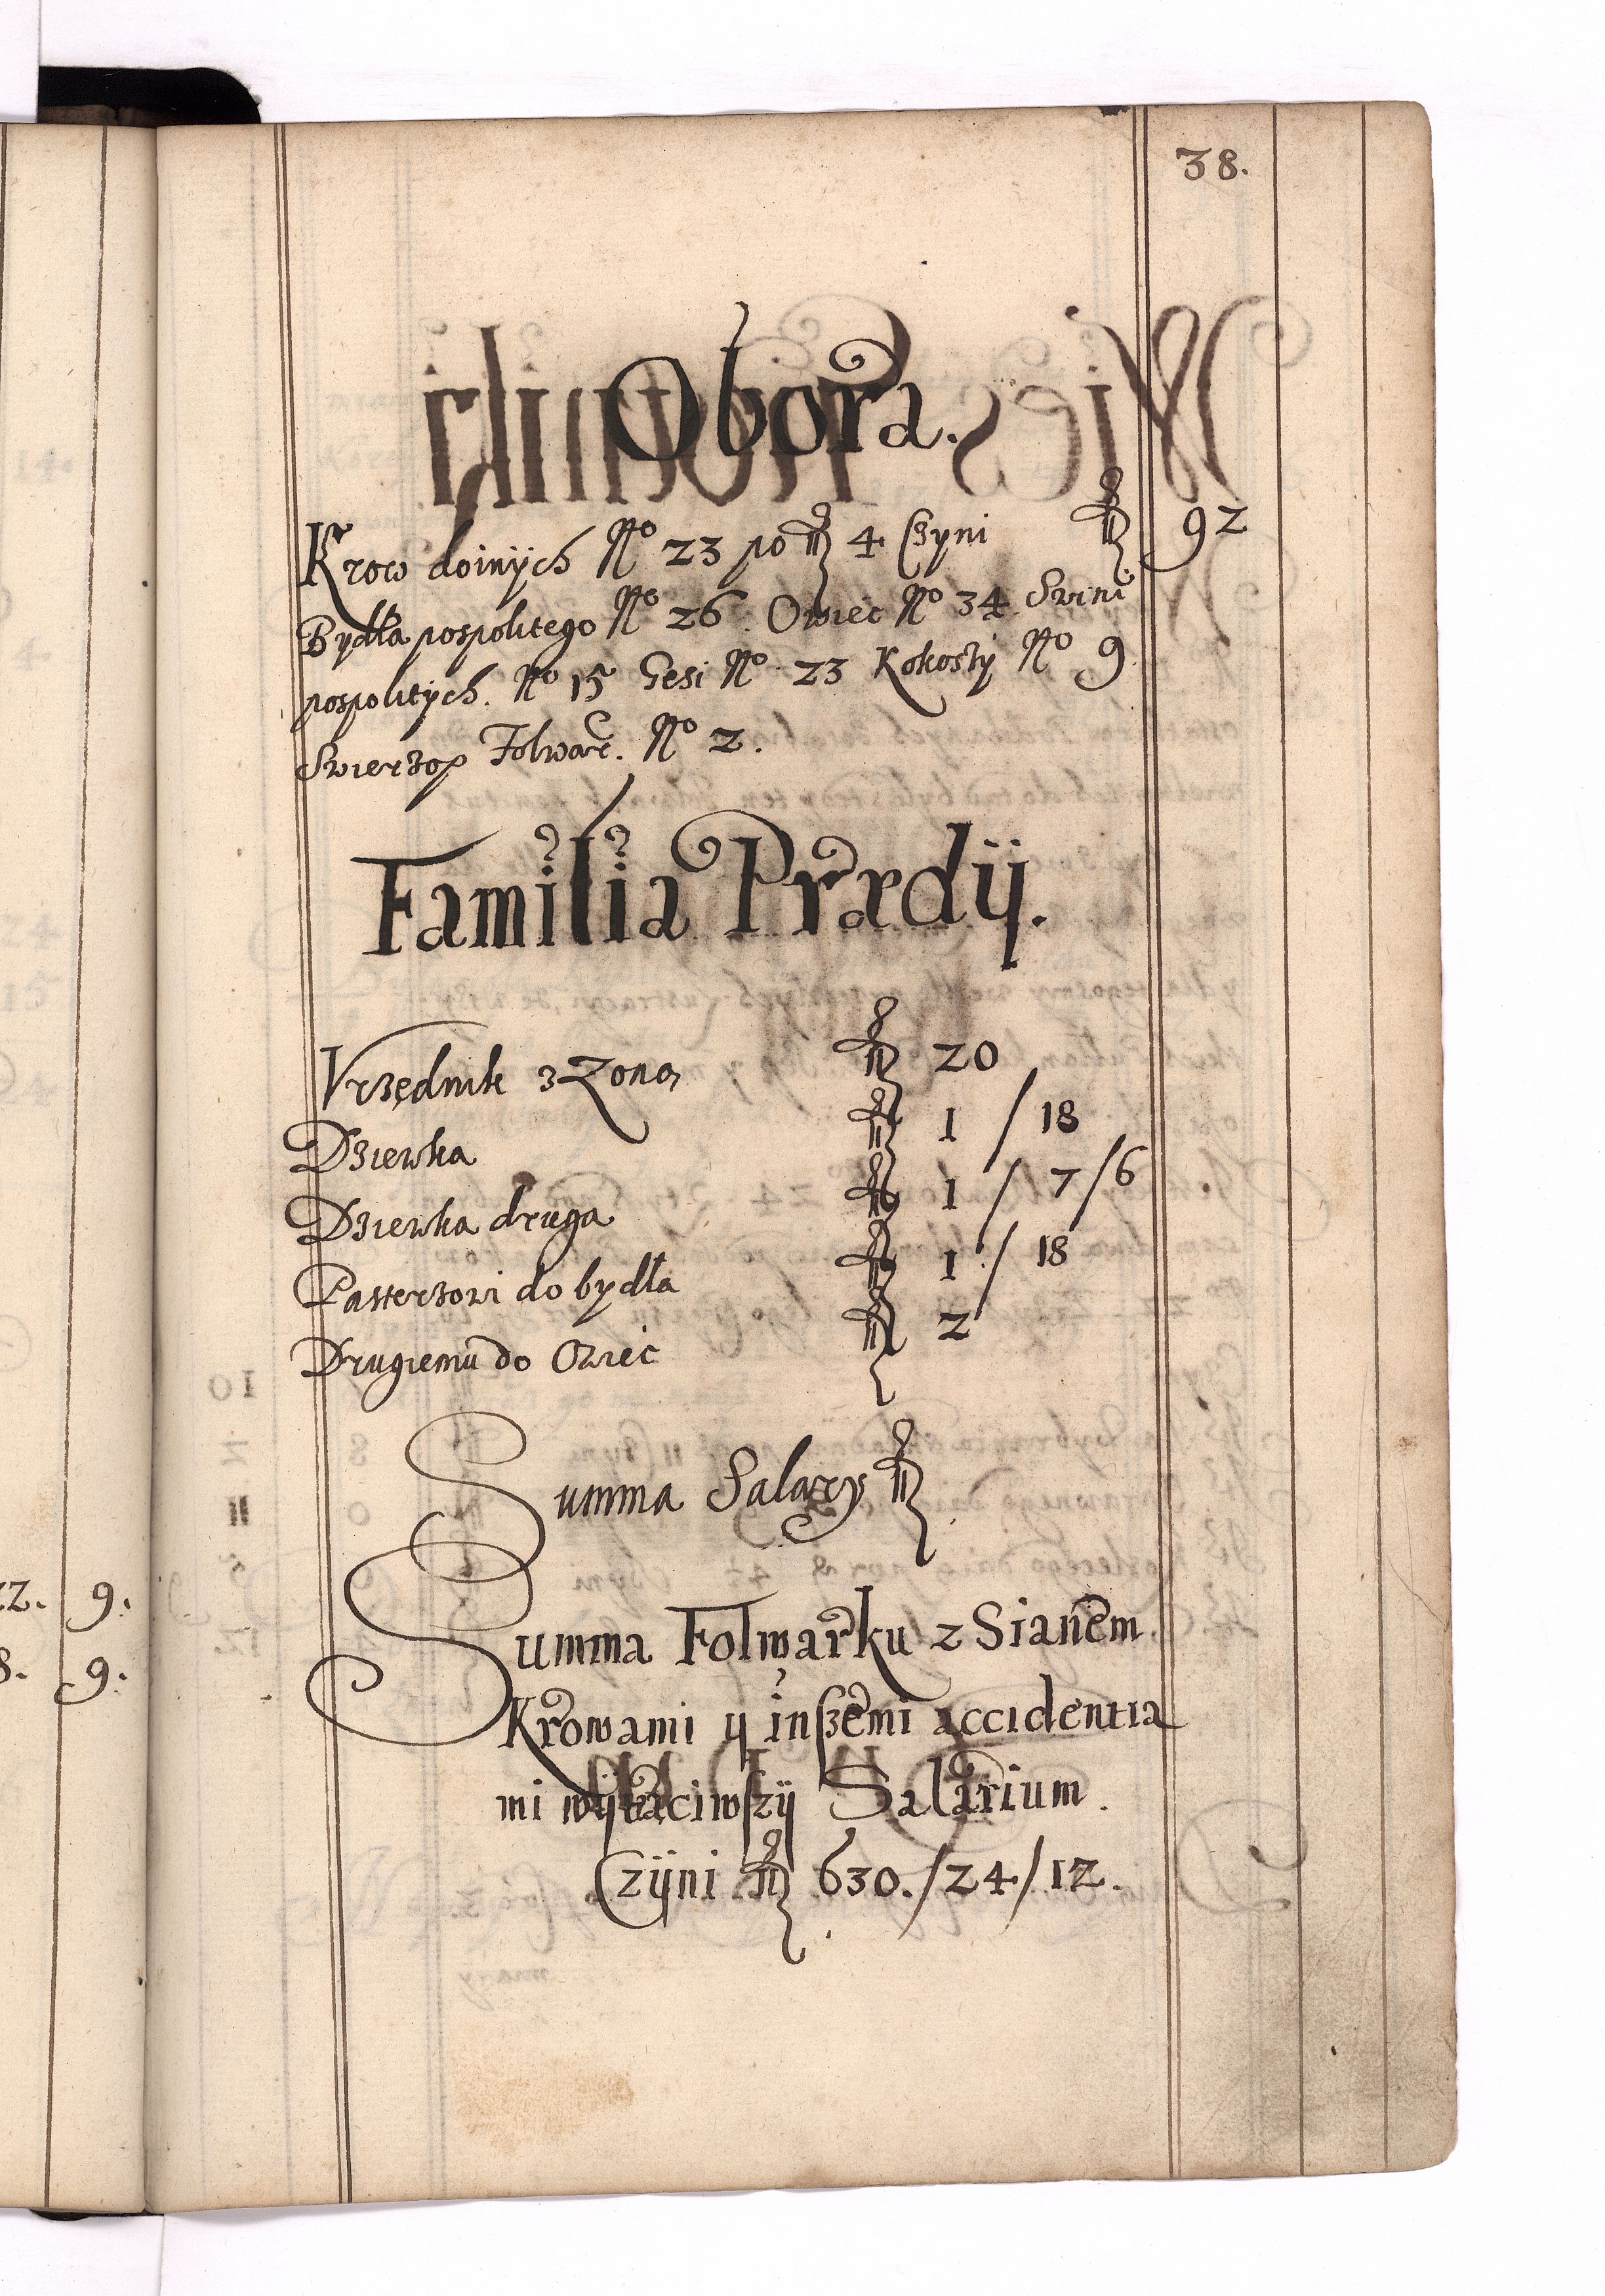 38.
Obora.
Krow doinÿch No 23 po fl 4 Czyni fl 92
Bydła pospolitego No 26. Owiec No 34. Swini
pospolitÿch. No 15 Gesi No 23 Kokoszÿ No 9
Swierzop Folwar. No 2.
Familia Prædÿ.
Vrzędnik z Zoną fl 20
Dziewka fl 1 / 18
Dziewka druga fl 1 / 7 / 6
Pasterzowi do bydła fl 1 / 18
Drugiemu do Owiec fl 2
Summa Salary fl
Summa Folwarku z Sianem
Krowami ÿ inszemi accidentia
mi wÿtraciwszÿ Salarium.
Czÿni fl 630. / 24 / 12.
14.
24
15
22. 9.
8. 9.